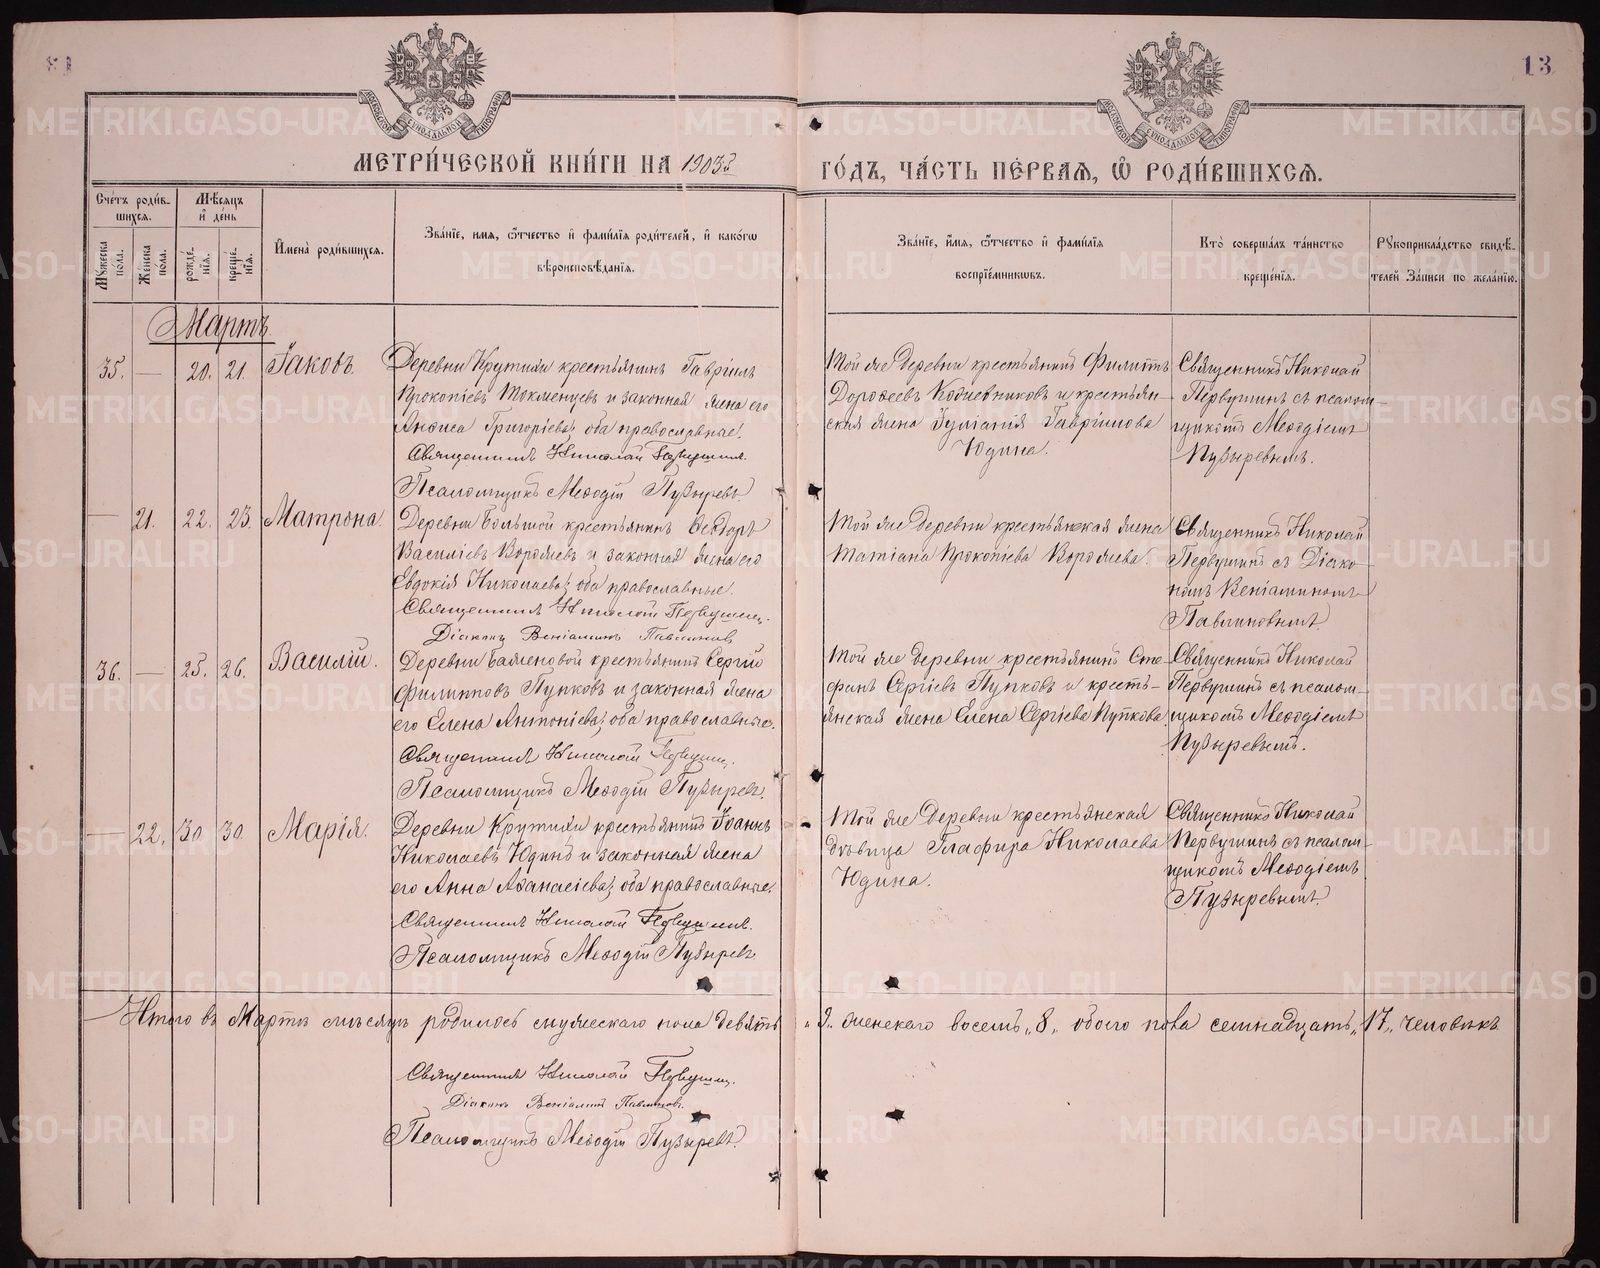 13
МЕТРИ́ЧЕСКОЙ КНИ́ГИ НА 1903й
ГО́ДЪ, ЧА́СТЬ ПЕ́РВАЯ, Ѡ҆ РОДИ́ВШИХСЯ.
Сче́тъ роди́в-
шихся.
Мѣ́сяцъ
и҆ де́нь
Му́жеска
пола.
Же́нска
пола.
рожде́-
нія.
креще́-
нія.
И҆мена̀ роди́вшихся.
Зва́ніе, имя, ѻ҆́тчество и҆ фами́лія роди́телей, и҆ како́гѡ
вѣроисповѣ́данія.
Зва́ніе, и҆́мя, ѻ҆́тчество и҆ фами́лія
воспріе́мникѡвъ.
Кто̀ соверша́лъ та́инство
креще́нія.
Рукоприкла́дство свидѣ́-
телей За́писи по жела́нію.
Мартъ.
35. — 20. 21. Іаковъ.
Деревни Крутихи крестьянинъ Гавріилъ
Прокопіевъ Токменцевъ и законная жена его
Анѳиса Григоріева; оба православные.
Священникъ Николай Первушинъ.
Псаломщикъ Меѳодій Пузыревъ.
Той же деревни крестьянинъ Филиппъ
Дороѳеевъ Кодневниковъ и крестьян-
ская жена Іуліанія Гавріилова
Юдина.
Священникъ Николай
Первушинъ съ псалом-
щикомъ Меѳодіемъ
Пузыревымъ.
— 21. 22. 23. Матрона.
Деревни Большой крестьянинъ Ѳеодоръ
Василіевъ Воро́жевъ и законная жена его
Евдокія Николаева; оба православные.
Священникъ Николай Первушинъ.
Діаконъ Веніаминъ Павлиновъ
Той же деревни крестьянская жена
Татіана Прокопіева Ворожева.
Священникъ Николай
Первушинъ съ Діако-
номъ Веніаминомъ
Павлиновымъ.
36. — 25. 26. Василій.
Деревни Баженовой крестьянинъ Сергій
Филипповъ Пупковъ и законная жена
его Елена Антоніева; оба православные.
Священникъ Николай Первушинъ.
Псаломщикъ Меѳодій Пузыревъ.
Той же деревни крестьянинъ Сте-
фанъ Сергіевъ Пупковъ и кресть-
янская жена Елена Сергіева Пупкова.
Священникъ Николай
Первушинъ съ псалом-
щикомъ Меѳодіемъ
Пузыревымъ.
— 22. 30. 30. Марія.
Деревни Крутихи крестьянинъ Іоаннъ
Николаевъ Юдинъ и законная жена
его Анна Аѳанасіева; оба православные.
Священникъ Николай Первушинъ.
Псаломщикъ Меѳодій Пузыревъ
Той же деревни крестьянская
вдовица Глафира Николаева
Юдина.
Священникъ Николай
Первушинъ съ псалом-
щикомъ Меѳодіемъ
Пузыревымъ.
Итого въ Мартѣ мѣсяцѣ родилось мужескаго пола девять „9„ женскаго восемь „8„ обоего пола семнадцать „17„ человѣкъ
Священникъ Николай Первушинъ.
Діаконъ Веніаминъ Павлиновъ.
Псаломщикъ Меѳодій Пузыревъ.
METRIKI.GASO-URAL.RU